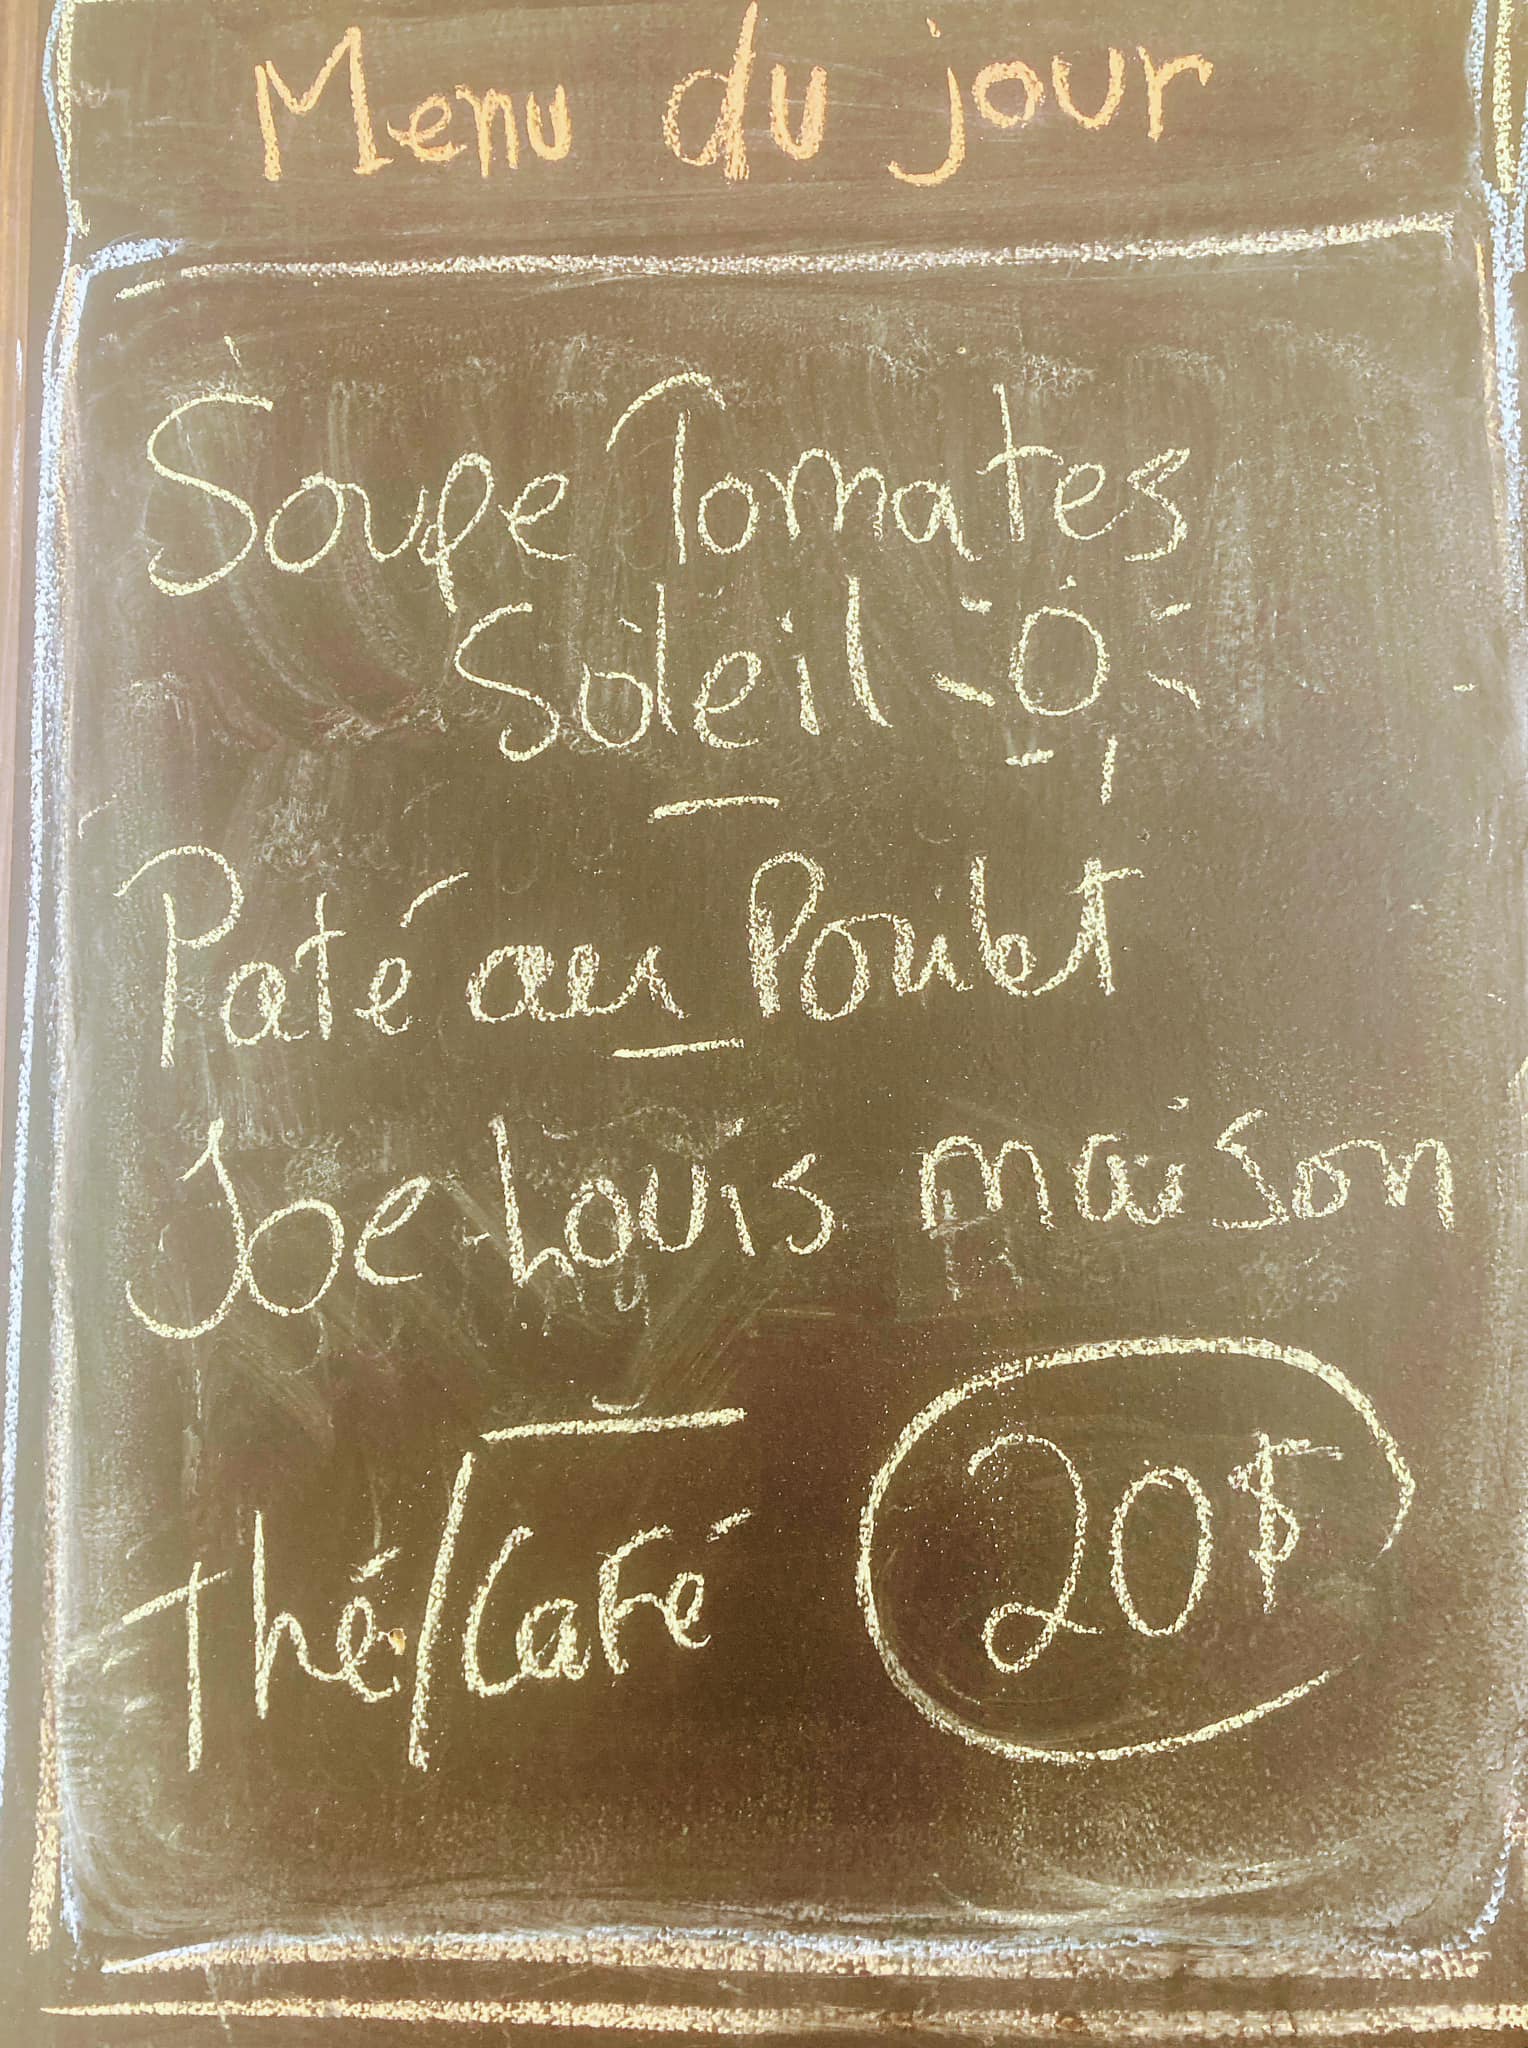 Menu du jour
Soupe Tomates
Soleil
Paté au Poulet
Joe Louis maison
Thé/Café
20$